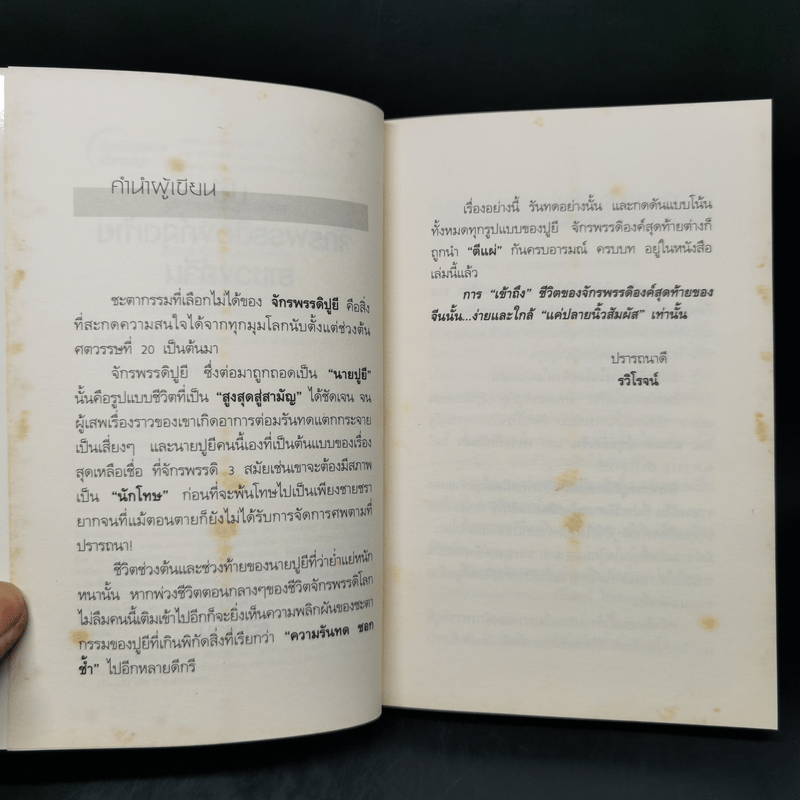 คำนำผู้เขียน
ชะตากรรมที่เลือกไม่ได้ของ จักรพรรดิปูยี คือสิ่ง
ที่สะกดความสนใจได้จากทุกมุมโลกนับตั้งแต่ช่วงต้น
ศตวรรษที่ 20 เป็นต้นมา
จักรพรรดิปูยี ซึ่งต่อมาถูกถอดเป็น “นายปูยี”
นั้นคือรูปแบบชีวิตที่เป็น “สูงสุดสู่สามัญ” ได้ชัดเจน จน
ผู้เสพเรื่องราวของเขาเกิดอาการต่อมรันทดแตกกระจาย
เป็นเสี่ยงๆ และนายปูยีคนนี้เองที่เป็นต้นแบบของเรื่อง
สุดเหลือเชื่อ ที่จักรพรรดิ 3 สมัยเช่นเขาจะต้องมีสภาพ
เป็น “นักโทษ” ก่อนที่จะพ้นโทษไปเป็นเพียงชายชรา
ยากจนที่แม้ตอนตายก็ยังไม่ได้รับการจัดการศพตามที่
ปรารถนา!
ชีวิตช่วงต้นและช่วงท้ายของนายปูยีที่ว่าย่ำแย่หนัก
หนานั้น หากพ่วงชีวิตตอนกลางๆของชีวิตจักรพรรดิโลก
ไม่ลืมคนนี้เติมเข้าไปอีกก็จะยิ่งเห็นความพลิกผันของชะตา
กรรมของปูยีที่เกินพิกัดสิ่งที่เรียกว่า “ความรันทด ชอก
ช้ำ” ไปอีกหลายดีกรี
เรื่องอย่างนี้ รันทดอย่างนั้น และกดดันแบบโน้น
ทั้งหมดทุกรูปแบบของปูยี จักรพรรดิองค์สุดท้ายต่างก็
ถูกนำ “ตีแผ่” กันครบอารมณ์ ครบบท อยู่ในหนังสือ
เล่มนี้แล้ว
การ “เข้าถึง” ชีวิตของจักรพรรดิองค์สุดท้ายของ
จีนนั้น...ง่ายและใกล้ “แค่ปลายนิ้วสัมผัส” เท่านั้น
ปรารถนาดี
รวิโรจน์